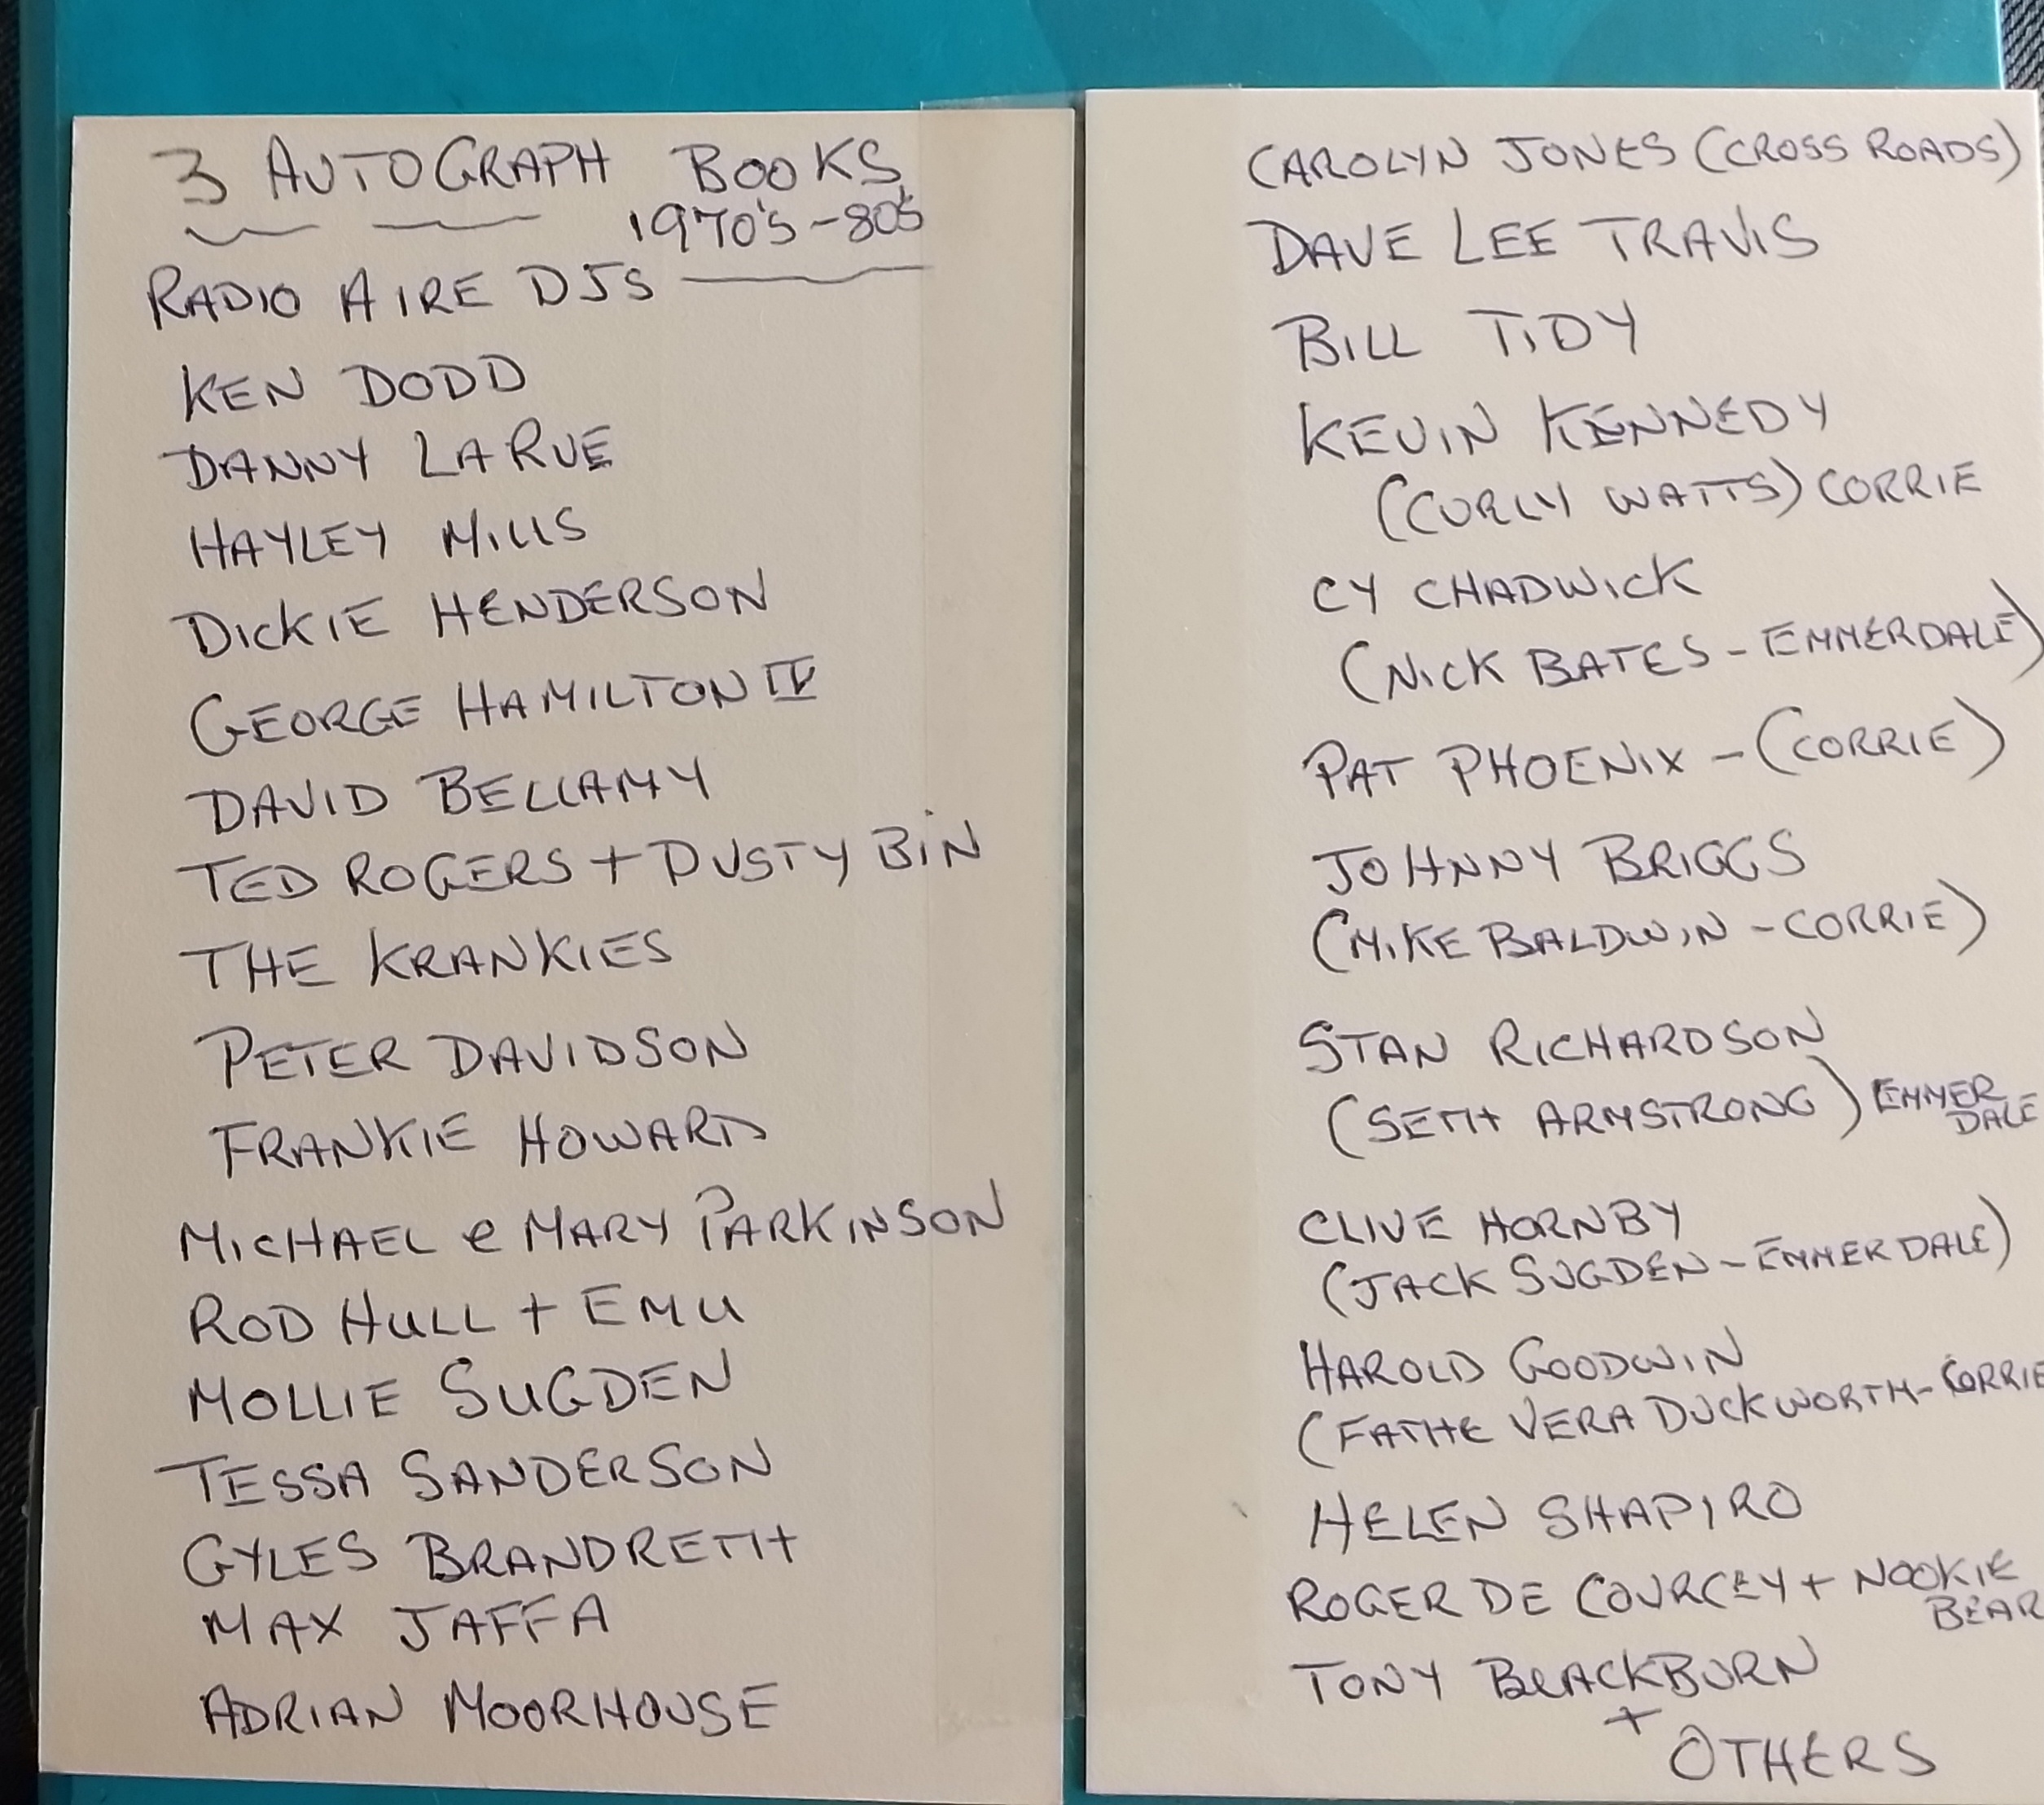 3 AUTOGRAPH BOOKS
1970's-80's
RADIO AIRE DJs
KEN DODD
DANNY LA RUE
HAYLEY MILLS
DICKIE HENDERSON
GEORGE HAMILTON IV
DAVID BELLAMY
TED ROGERS + DUSTY BIN
THE KRANKIES
PETER DAVIDSON
FRANKIE HOWARD
MICHAEL e MARY PARKINSON
ROD HULL + EMU
MOLLIE SUGDEN
TESSA SANDERSON
GYLES BRANDRETH
MAX JAFFA
ADRIAN MOORHOUSE
CAROLYN JONES (CROSS ROADS)
DAVE LEE TRAVIS
BILL TIDY
KEVIN KENNEDY
(CURLY WATTS) CORRIE
CY CHADWICK
(NICK BATES - EMMERDALE)
PAT PHOENIX - (CORRIE)
JOHNNY BRIGGS
(MIKE BALDWIN - CORRIE)
STAN RICHARDSON
(SETH ARMSTRONG) EMMER
DALE
CLIVE HORNBY
(JACK SUGDEN - EMMERDALE)
HAROLD GOODWIN
(FATHE VERA DUCKWORTH - CORRIE
HELEN SHAPIRO
ROGER DE COURCEY + NOOKIE
BEAR
TONY BLACKBURN
+
OTHERS